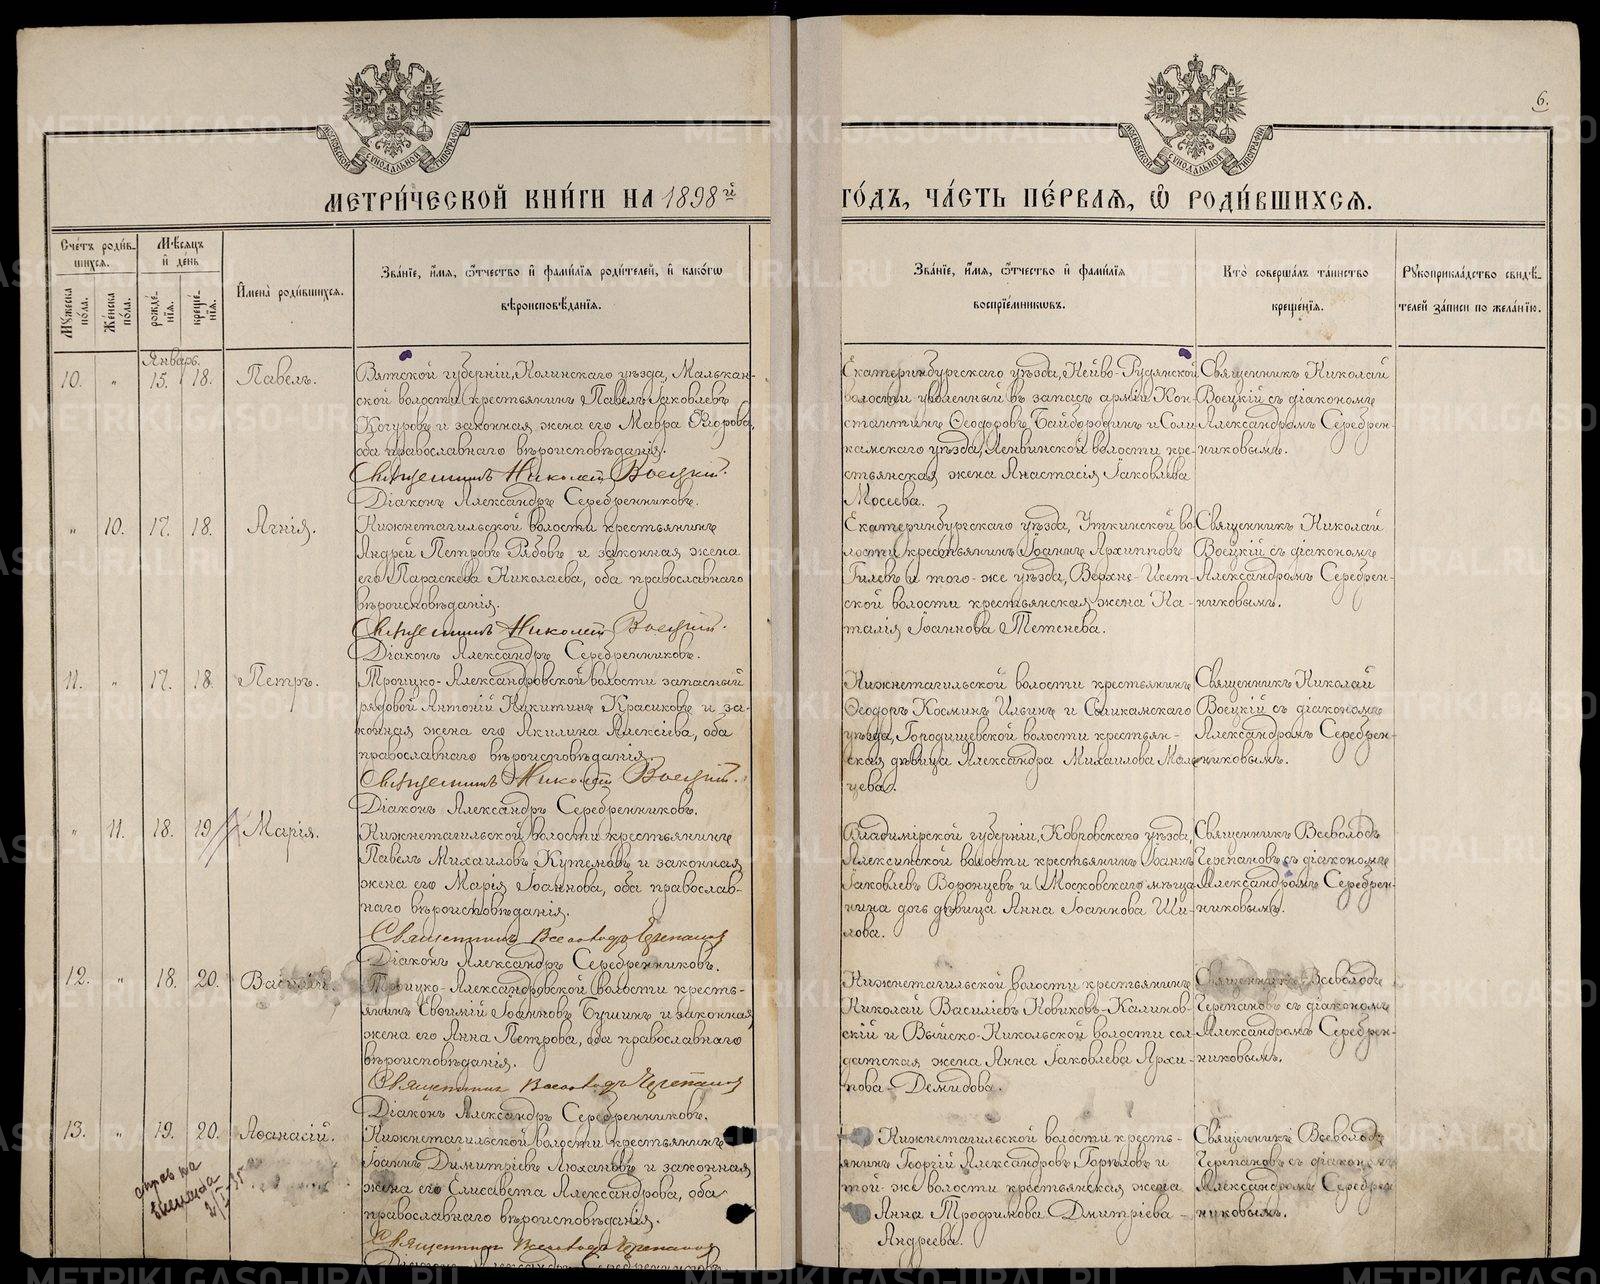 6.
МОСКОВСКОЙ СѴНОДАЛЬНОЙ ТИПОГРАФІИ
МОСКОВСКОЙ СѴНОДАЛЬНОЙ ТИПОГРАФІИ
МЕТРИ́ЧЕСКОЙ КНИ́ГИ НА 1898й
ГО́ДЪ, ЧА́СТЬ ПЕ́РВАѦ, Ѽ РОДИ́ВШИХСѦ.
Сче́тъ роди́вшихсѧ.
Мꙋ́жеска по́ла.
Же́нска по́ла.
Мѣ́сѧцъ и҆ де́нь
рожде́нїѧ.
креще́нїѧ.
И҆мена̀ роди́вшихсѧ.
Зва́нїе, и҆́мѧ, ѻ҆́тчество и҆ фами́лїѧ роди́телей, и҆ како́гѡ
вѣроисповѣ́данїѧ.
Зва́нїе, и҆́мѧ, ѻ҆́тчество и҆ фами́лїѧ
воспрїе́мникѡвъ.
Кто̀ соверша́лъ та́инство
креще́нїѧ.
Рꙋкоприкла́дство свидѣ́-
телей за́писи по жела́нїю.
Январь.
10. " 15. 18. Павелъ.
Вятской губерніи, Нолинскаго уѣзда, Малькан-
ской волости крестьянинъ Павелъ Іаковлевъ
Кочуровъ и законная жена его Мавра Егорова,
оба православнаго вѣроисповѣданія.
Священникъ Николай Воецкій.
Діаконъ Александръ Серебренниковъ.
Екатеринбургскаго уѣзда, Нейво-Рудянской
волости уволенный въ запасъ арміи Кон-
стантинъ Ѳеодоровъ Байбородинъ и Соли-
камскаго уѣзда, Ленвинской волости кре-
стьянская жена Анастасія Іаковлева
Мосеева.
Священникъ Николай
Воецкій съ діакономъ
Александромъ Серебрен-
никовымъ.
" 10. 17. 18. Агнія.
Нижнетагильской волости крестьянинъ
Андрей Петровъ Рябовъ и законная жена
его Параскева Николаева, оба православнаго
вѣроисповѣданія.
Священникъ Николай Воецкій.
Діаконъ Александръ Серебренниковъ.
Екатеринбургскаго уѣзда, Уткинской во-
лости крестьянинъ Іоаннъ Архипповъ
Гилевъ и того-же уѣзда, Верхне-Исет-
ской волости крестьянская жена На-
талія Іоаннова Тетенева.
Священникъ Николай
Воецкій съ діакономъ
Александромъ Серебрен-
никовымъ.
11. " 17. 18. Петръ.
Троицко-Александровской волости запасный
рядовой Антоній Никитинъ Красиковъ и за-
конная жена его Акилина Алексіева, оба
православнаго вѣроисповѣданія.
Священникъ Николай Воецкій.
Діаконъ Александръ Серебренниковъ.
Нижнетагильской волости крестьянинъ
Ѳеодоръ Космин Ильинъ и Соликамскаго
уѣзда, Городищевской волости крестьян-
ская дѣвица Александра Михаилова Маль-
цева.
Священникъ Николай
Воецкій съ діакономъ
Александромъ Серебрен-
никовымъ.
" 11. 18. 19. Марія.
Нижнетагильской волости крестьянинъ
Павелъ Михаиловъ Кутемовъ и законная
жена его Марія Іоаннова, оба православ-
наго вѣроисповѣданія.
Священникъ Всеволодъ Черепановъ
Діаконъ Александръ Серебренниковъ.
Владимірской губерніи, Ковровскаго уѣзда,
Алексинской волости крестьянинъ Іоаннъ
Іаковлевъ Воронцевъ и Московскаго мѣща-
нина дочь дѣвица Анна Іоаннова Ши-
лова.
Священникъ Всеволодъ
Черепановъ съ діакономъ
Александромъ Серебрен-
никовымъ.
12. " 18. 20. Василій.
Троицко-Александровской волости кресть-
янинъ Евѳимій Іоанновъ Бушинъ и законная
жена его Анна Петрова, оба православнаго
вѣроисповѣданія.
Священникъ Всеволодъ Черепановъ
Діаконъ Александръ Серебренниковъ.
Нижнетагильской волости крестьянинъ
Николай Василіевъ Новиковъ-Калинов-
скій и Выйско-Никольской волости сол-
датская жена Анна Іаковлева Архи-
пова-Демидова.
Священникъ Всеволодъ
Черепановъ съ діакономъ
Александромъ Серебрен-
никовымъ.
13. " 19. 20. Аѳанасій.
Нижнетагильской волости крестьянинъ
Іоаннъ Димитріевъ Люхановъ и законная
жена его Елисавета Александрова, оба
православнаго вѣроисповѣданія.
Священникъ Всеволодъ Черепановъ
Діаконъ Александръ Серебренниковъ
Нижнетагильской волости кресть-
янинъ Георгій Александровъ Горѣловъ и
той-же волости крестьянская жена
Анна Трофимова Дмитріева-
Андреева.
Священникъ Всеволодъ
Черепановъ съ діакономъ
Александромъ Серебрен-
никовымъ.